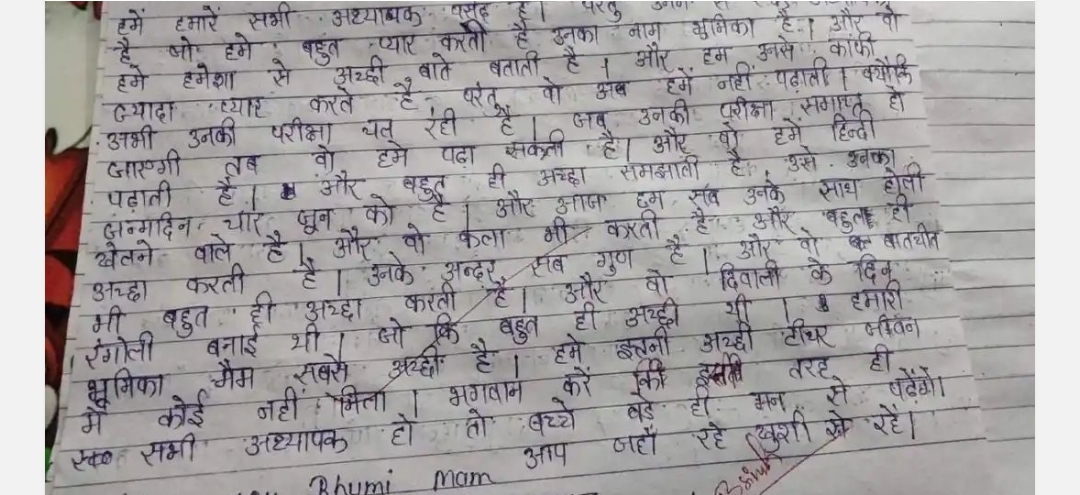 हमें हमारें सभी अध्यापक पसंद है। परंतु
है जो हमे बहुत प्यार करती है उनका नाम भुमिका है। और वो
हमे हमेशा से अच्छी बाते बताती है। और हम उनसे काफी
ज्यादा प्यार करते है परंतु वो अब हमें नहीं पढ़ाती। क्योंकि
अभी उनकी परीक्षा चल रही है। जब उनकी परीक्षा समाप्त हो
जाएगी तब वो हमे पढ़ा सकती है। और वो हमें हिन्दी
पढ़ाती है। और बहुत ही अच्छा समझाती है उसे उनका
जन्मदिन चार जून को है। और आज हम सब उनके साथ होली
खेलने वाले है। और वो कला भी करती है और बहुत ही
अच्छा करती है। उनके अन्दर सब गुण है। और वो बातचीत
भी बहुत ही अच्छा करती है। और वो दिवाली के दिन
रंगोली बनाई थी। जो कि बहुत ही अच्छी थी। हमारी
भूमिका मैम सबसे अच्छी है। हमे इतनी अच्छी टीचर जीवन
में कोई नहीं मिला। भगवान करें कि इसी तरह ही
सभी अध्यापक हो तो बच्चे बड़े ही मन से पढ़ेंगे।
आप जहाँ रहे खुशी से रहें।
Bhumi mam